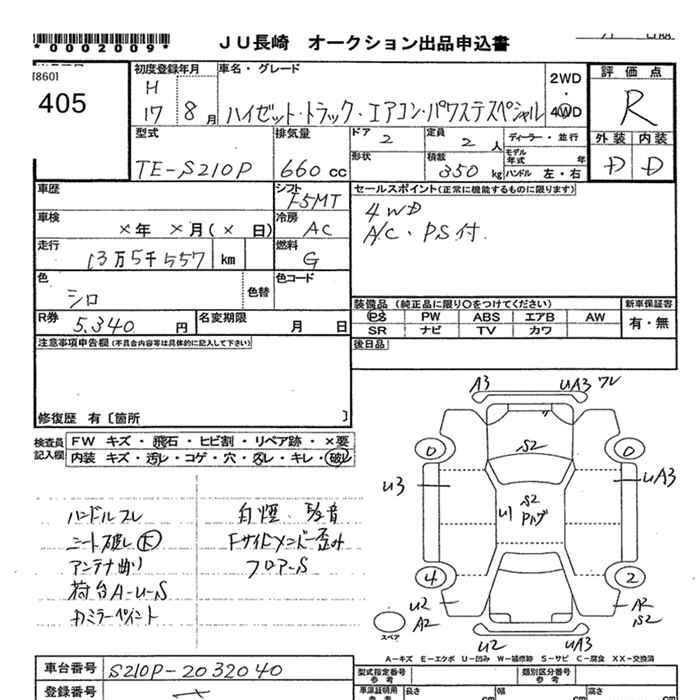 *0002009*
JU長崎 オークション出品申込書
[860]
405
初度登録年月
H
17 8月
車名・グレード
ハイゼット・トラック・エアコン・パワステスペシャル
2WD
・
4WD
評価点
R
外装 内装
D D
型式
TE-S210P
排気量
660 cc
ドア 2
定員 2人
ディーラー・並行
形状
積載 350 kg
モデル年式 年
ハンドル 左・右
車歴
シフト
F5MT
セールスポイント(正常に機能するものに限ります)
4WD
A/C・PS付.
車検
×年 ×月(×日)
冷房
AC
走行
13万5千557 km
燃料
G
色
シロ
色替
色コード
R券
5,340 円
名変期限
月 日
装備品 (純正品に限り○をつけてください)
PS PW ABS エアB AW
SR ナビ TV カワ
新車保証書
有・無
注意事項申告欄(不具合内容等は具体的に記入して下さい)
後日品
修復歴 有[箇所 ]
検査員
記入欄
FW キズ・飛石・ヒビ割・リペア跡・×要
内装 キズ・汚レ・コゲ・穴・スレ・キレ・破レ
ハンドルスレ
シート破レ
アンテナ曲り
荷台A-U-S
ミラーペイント
白煙、異音
Fサイドメンバー歪み
フロア-S
A3 UA3 ワレ
0 0
S2
U3 UA3
U1 S2
4 2
U2
A2
A2
S2
スペア
U2 UA3
A-キズ E-エクボ U-凹み W-補修跡 S-サビ C-腐食 XX-交換済
車台番号
S210P-2032040
登録番号
型式指定番号
参考
類別区分番号
参考
車源証明用
参考
長さ 幅 高さ